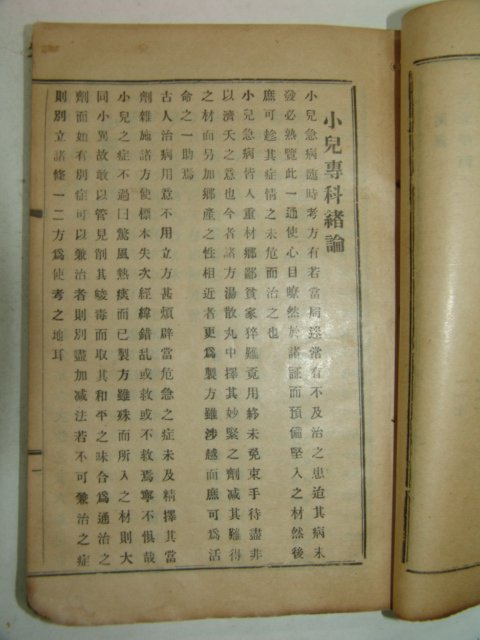 小兒專科緖論
小兒急病臨時考方有若當局迷常有不及治之患迨其病未
發必熟覽此一通使心目暸然於諸証而預備堅入之材然後
庶可趁其症情之未危而治之也
小兒急病皆人重材鄉鄙貧家猝難竟用終未免束手待盡非
以濟夭之意也今者諸方湯散丸中擇其妙緊之劑减其難得
之材而另加鄉產之性相近者更爲製方雖涉越而庶可爲活
命之一助焉
古人治病用意不用立方甚煩辟當危急之症未及精擇其當
劑雜施諸方使標本失次經緯錯乱或救或不救焉寧不惧哉
小兒之症不過曰驚風熱痰而已製方雖殊而所入之材則大
同小異故敢以管見削其峻毒而取其和平之味合爲通治之
劑而如有別症可以兼治者則別盡加减法若不可兼治之症
則別立諸條一二方爲使考之地耳